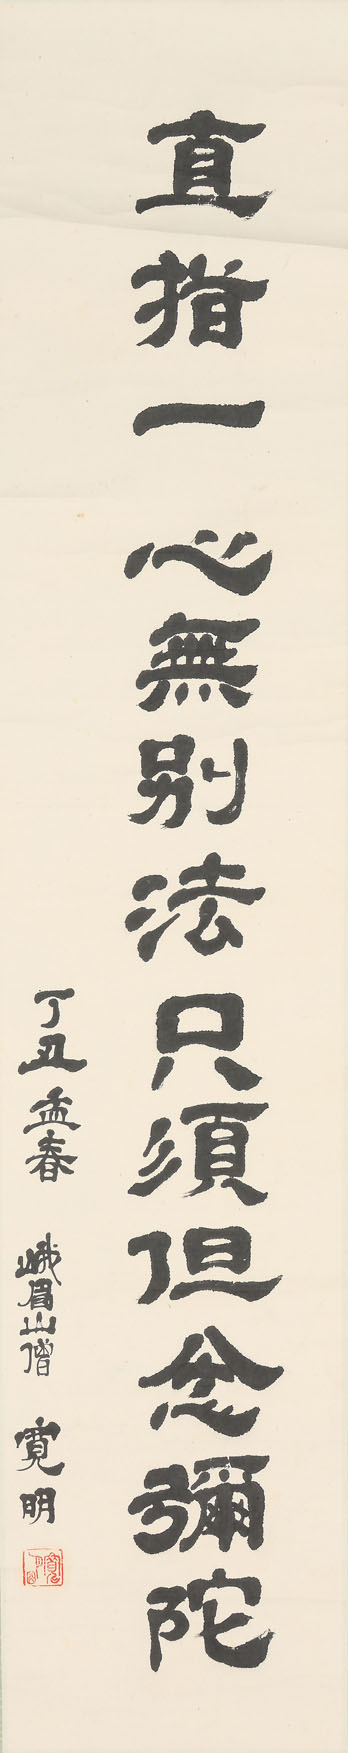 直指一心無別法只須但念彌陀
丁丑孟春 峨眉山僧 寬明